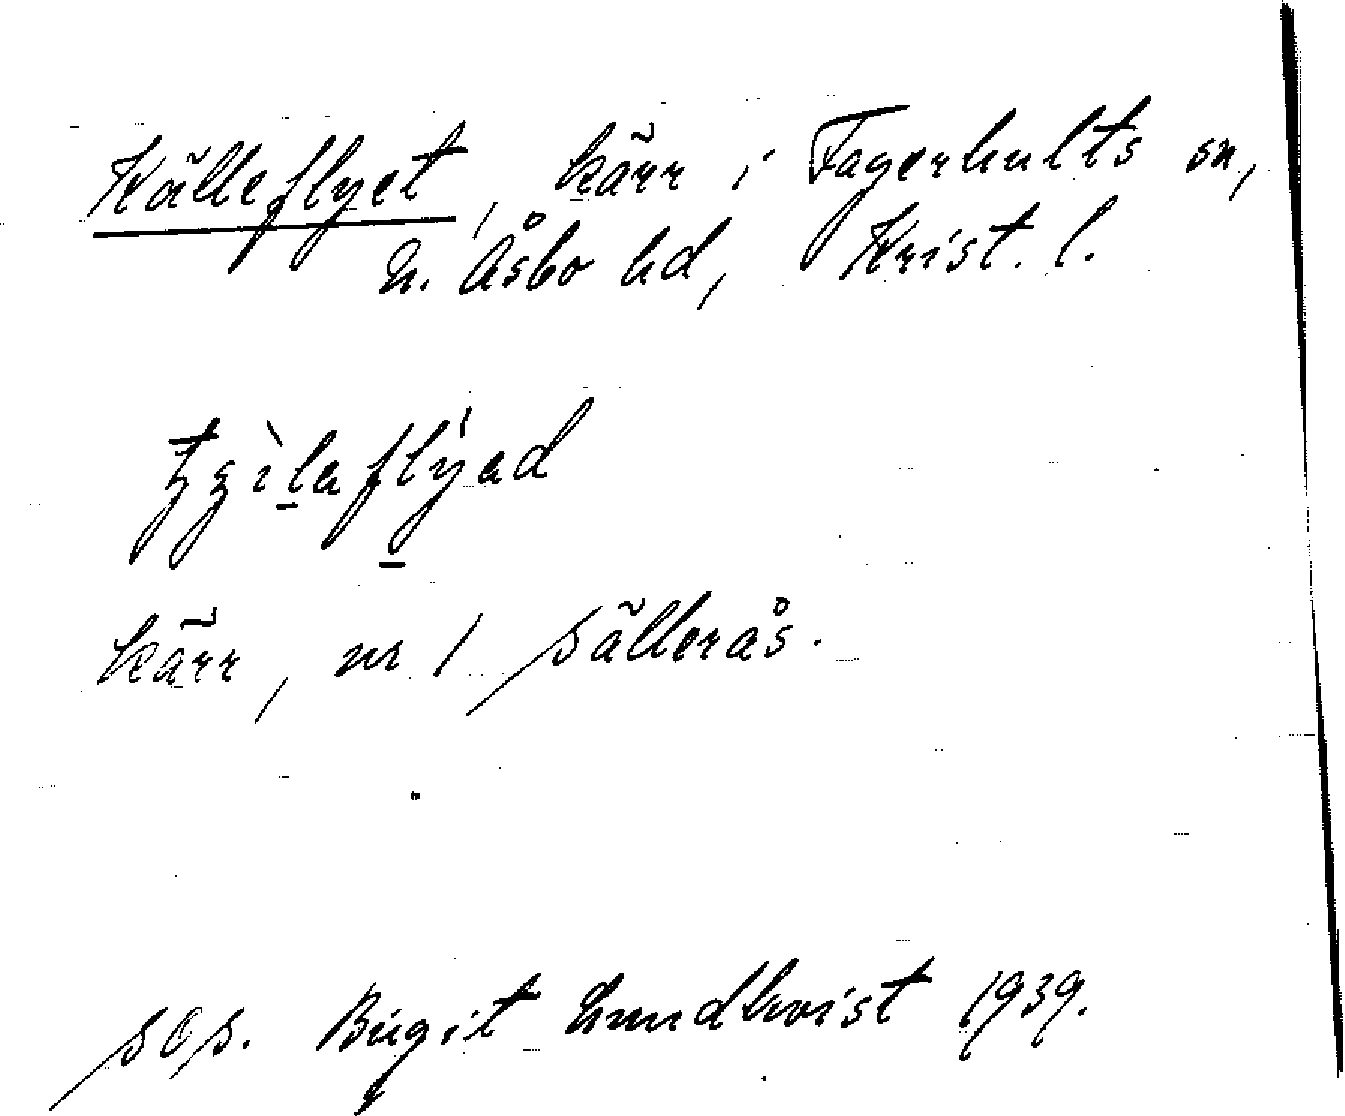 Källeflyet, kärr i Fagerhults sn,
N. Åsbo hd, Krist. l.
kärr, nr 1 Sällerås.
SOS. Birgit Lundkvist 1939.